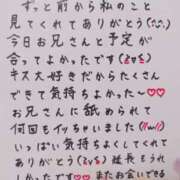 ずっと前から私のこと
見てくれてありがとう(∩´∀`∩)
今日お兄さんと予定が
合ってよかったです(≧∀≦)
キス大好きだからたくさん
できて気持ちよかった～♡♡
お兄さんに舐められて
何回もイッちゃいました(//ω//)
いっぱい気持ちよくしてくれて
ありがとう(≧∀≦)延長もうれ
しかったです♡♡またお会いできる